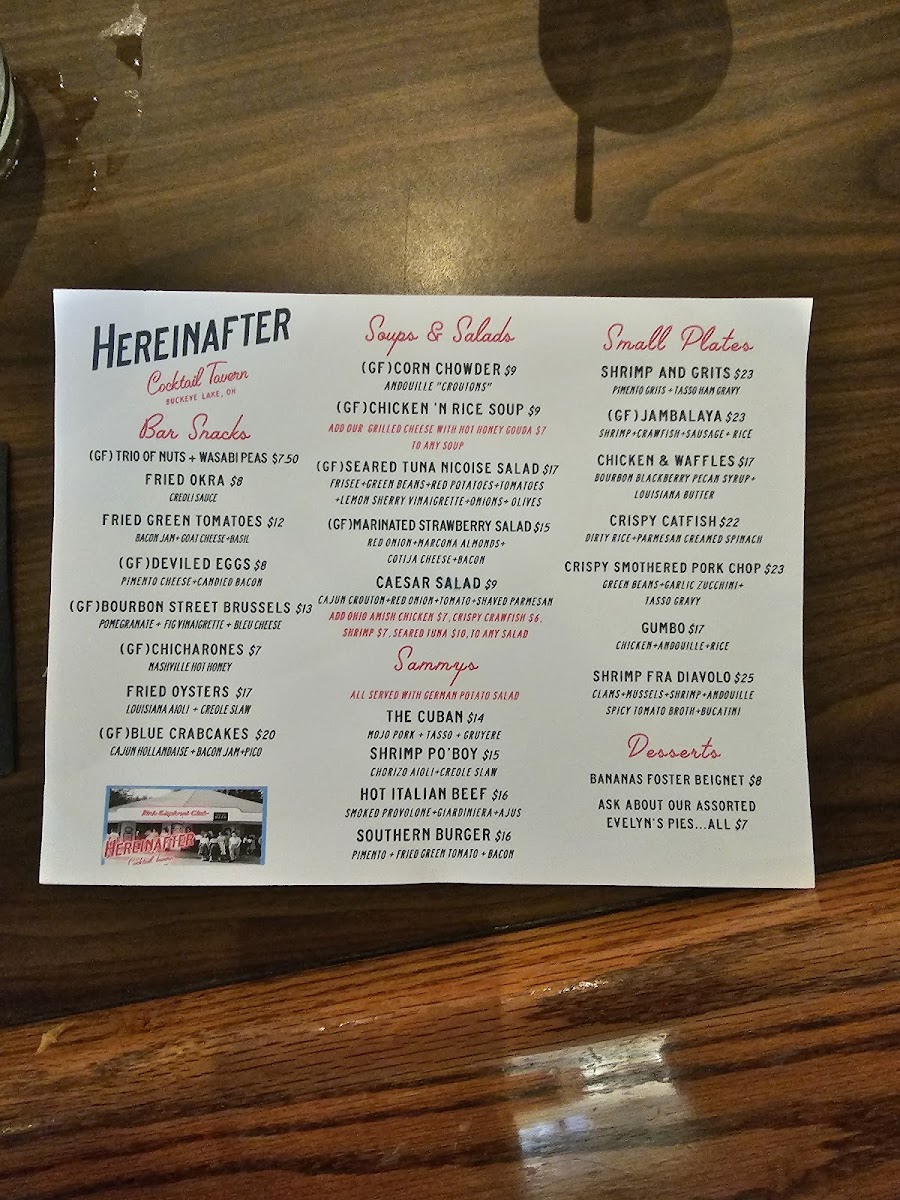 HEREINAFTER
Cocktail Tavern
BUCKEYE LAKE, OH
Bar Snacks
(GF) TRIO OF NUTS + WASABI PEAS $7.50
FRIED OKRA $8
CREOLI SAUCE
FRIED GREEN TOMATOES $12
BACON JAM+GOAT CHEESE+BASIL
(GF)DEVILED EGGS $8
PIMENTO CHEESE+CANDIED BACON
(GF)BOURBON STREET BRUSSELS $13
POMEGRANATE + FIG VINAIGRETTE + BLEU CHEESE
(GF)CHICHARONES $7
NASHVILLE HOT HONEY
FRIED OYSTERS $17
LOUISIANA AIOLI + CREOLE SLAW
(GF)BLUE CRABCAKES $20
CAJUN HOLLANDAISE + BACON JAM+PICO
Pink Elephant Club
HEREINAFTER
Cocktail Tavern
Soups & Salads
(GF)CORN CHOWDER $9
ANDOUILLE "CROUTONS"
(GF)CHICKEN 'N RICE SOUP $9
ADD OUR GRILLED CHEESE WITH HOT HONEY GOUDA $7
TO ANY SOUP
(GF)SEARED TUNA NICOISE SALAD $17
FRISEE+GREEN BEANS+RED POTATOES+TOMATOES
+LEMON SHERRY VINAIGRETTE+ONIONS+ OLIVES
(GF)MARINATED STRAWBERRY SALAD $15
RED ONION+MARCONA ALMONDS+
COTIJA CHEESE+BACON
CAESAR SALAD $9
CAJUN CROUTON+RED ONION+TOMATO+SHAVED PARMESAN
ADD OHIO AMISH CHICKEN $7, CRISPY CRAWFISH $6,
SHRIMP $7, SEARED TUNA $10, TO ANY SALAD
Sammys
ALL SERVED WITH GERMAN POTATO SALAD
THE CUBAN $14
MOJO PORK + TASSO + GRUYERE
SHRIMP PO'BOY $15
CHORIZO AIOLI+CREOLE SLAW
HOT ITALIAN BEEF $16
SMOKED PROVOLONE+GIARDINIERA+AJUS
SOUTHERN BURGER $16
PIMENTO + FRIED GREEN TOMATO + BACON
Small Plates
SHRIMP AND GRITS $23
PIMENTO GRITS + TASSO HAM GRAVY
(GF)JAMBALAYA $23
SHRIMP+CRAWFISH+SAUSAGE+ RICE
CHICKEN & WAFFLES $17
BOURBON BLACKBERRY PECAN SYRUP+
LOUISIANA BUTTER
CRISPY CATFISH $22
DIRTY RICE+PARMESAN CREAMED SPINACH
CRISPY SMOTHERED PORK CHOP $23
GREEN BEANS+GARLIC ZUCCHINI+
TASSO GRAVY
GUMBO $17
CHICKEN+ANDOUILLE+RICE
SHRIMP FRA DIAVOLO $25
CLAMS+MUSSELS+SHRIMP+ANDOUILLE
SPICY TOMATO BROTH+BUCATINI
Desserts
BANANAS FOSTER BEIGNET $8
ASK ABOUT OUR ASSORTED
EVELYN'S PIES...ALL $7